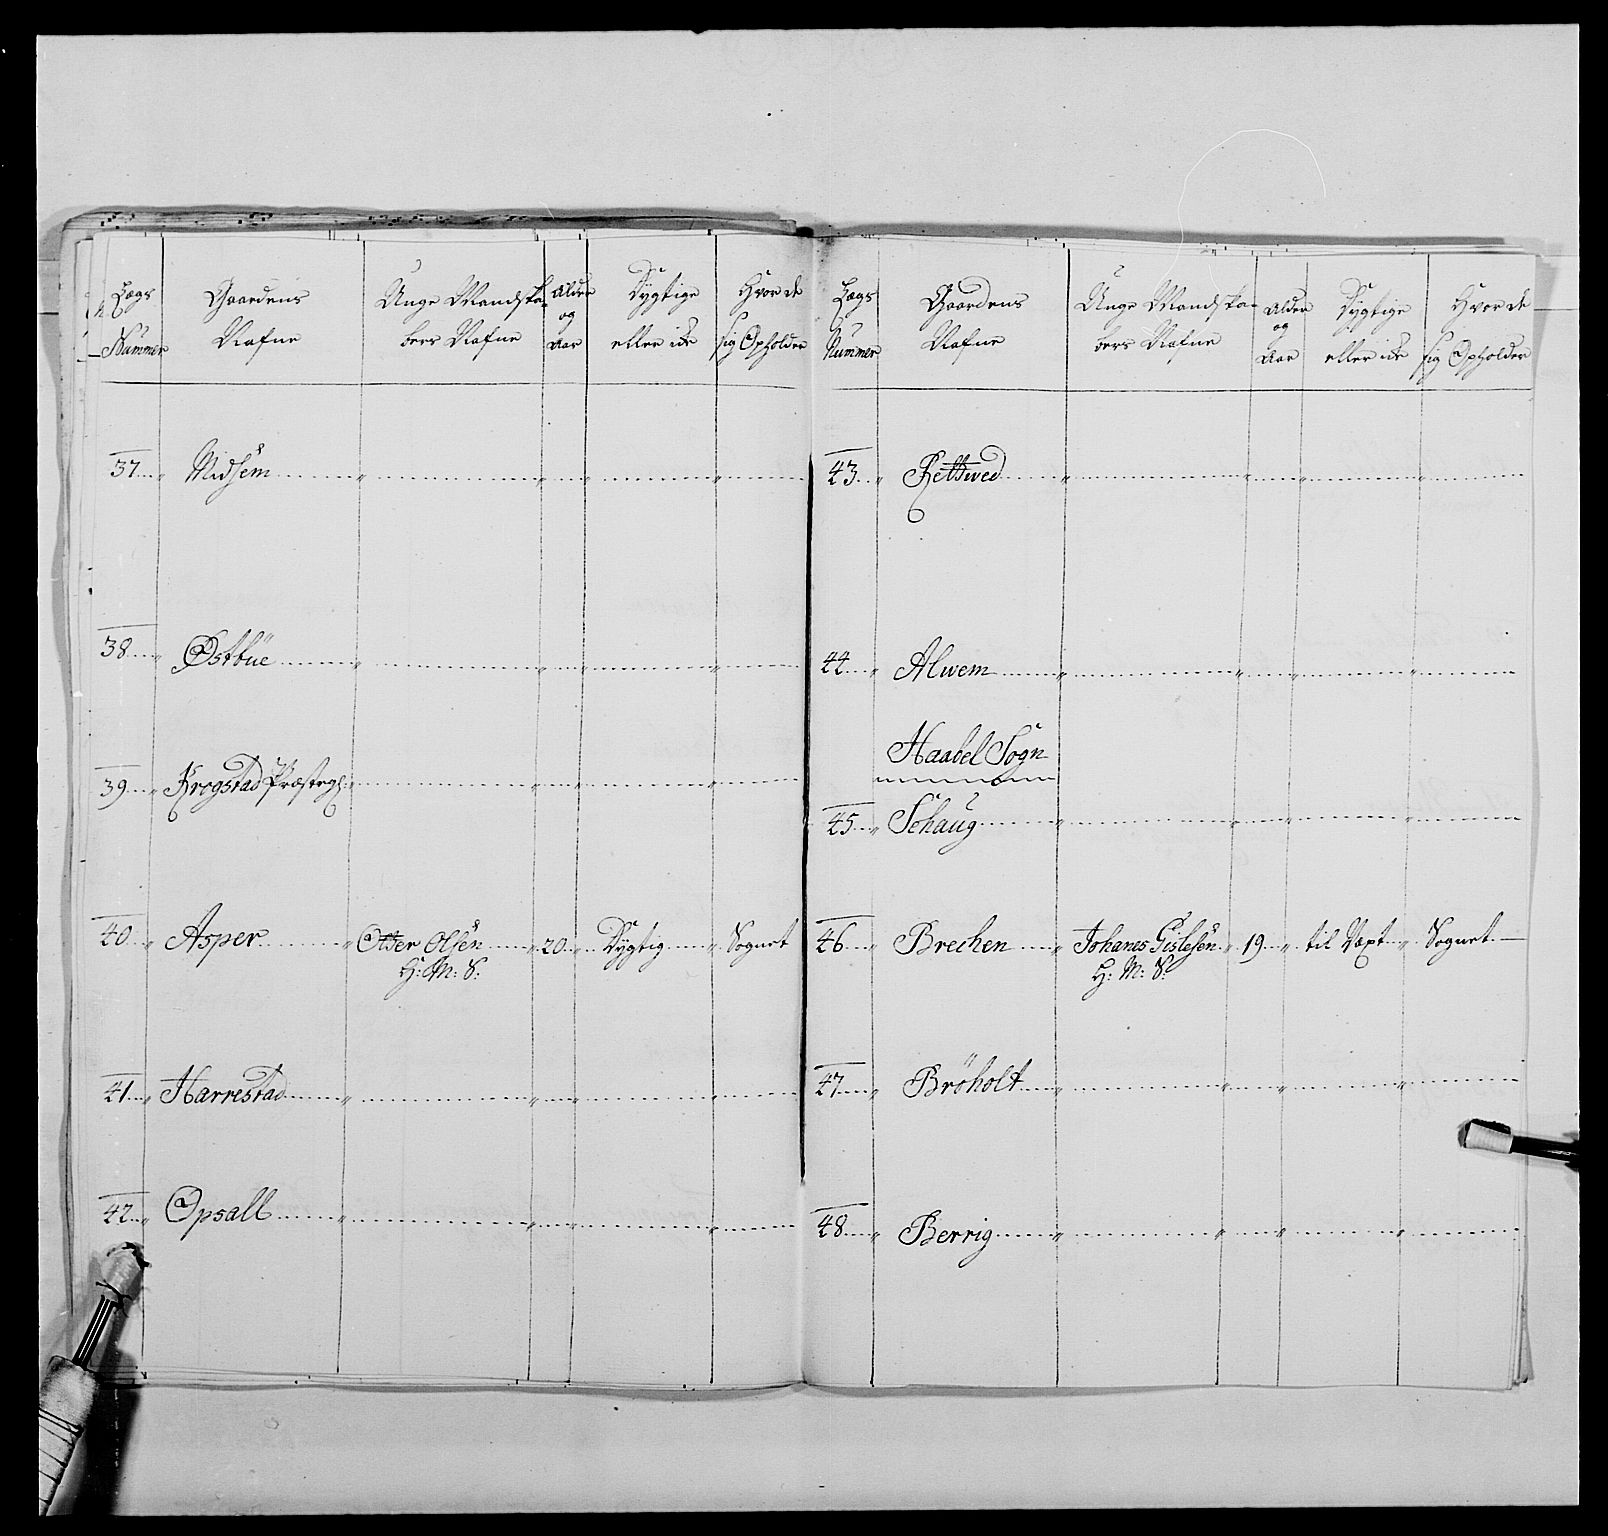 Lægs Nummer | Gaardens Nafne | Unge Mandskabers Nafne | Alder og Aar | Dygtige eller icke | Hvor de sig Opholder
37 | Midsem
38 | Østbüe
39 | Krogstad Præstegl.
40 | Asper | Otter Olsen H: M: S: | 20 | Dygtig | Sognet
41 | Harrestad
42 | Opsall
Lægs Nummer | Gaardens Nafne | Unge Mandskabers Nafne | Alder og Aar | Dygtige eller icke | Hvor de sig Opholder
43 | Rettwed
44 | Alwem
Haabel Sogn
45 | Schaug
46 | Brechen | Johanes Gislesen H: M: S: | 19 | til Vext | Sognet
47 | Bröholt
48 | Berrig